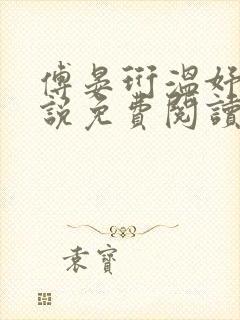 傅晏衍溫好
說免費閱讀
袁寶